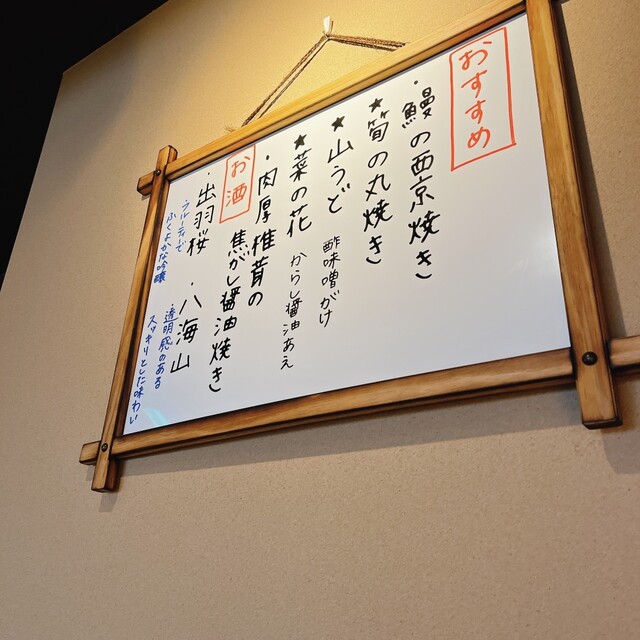 おすすめ
・鰻の西京焼き
★筍の丸焼き
★山うど 酢味噌がけ
★菜の花 からし醤油あえ
・肉厚椎茸の
焦がし醤油焼き
お酒
・出羽桜 ・八海山
・フルーティで
ふくよかな吟醸
・透明感のある
スッキリとした味わい